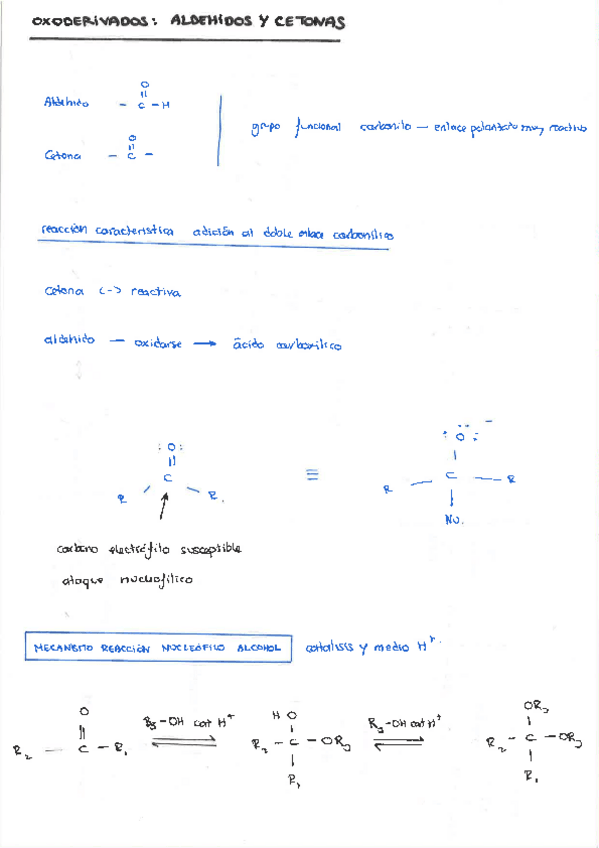 OXODERIVADOS: ALDEHIDOS Y CETONAS
O
Aldehido - C - H
O
Cetona - C -
grupo funcional carbonilo — enlace muy reactivo
reacción caracteristica adición al doble enlace carbonilico
Cetona (-) reactiva
aldehido — oxidarse → ácido carboxilico
: O :
C
R R.
≡
: O : -
C
R R
Nu.
carbono electrófilo susceptible
ataque nucleofilico
MECANISMO REACCIÓN NUCLEÓFILO ALCOHOL catalisis y medio H+.
O
R2 - C - R1
R3-OH cat H+
HO
R2 - C - OR3
R1
R3-OH cat H+
OR3
R2 - C - OR3
R1